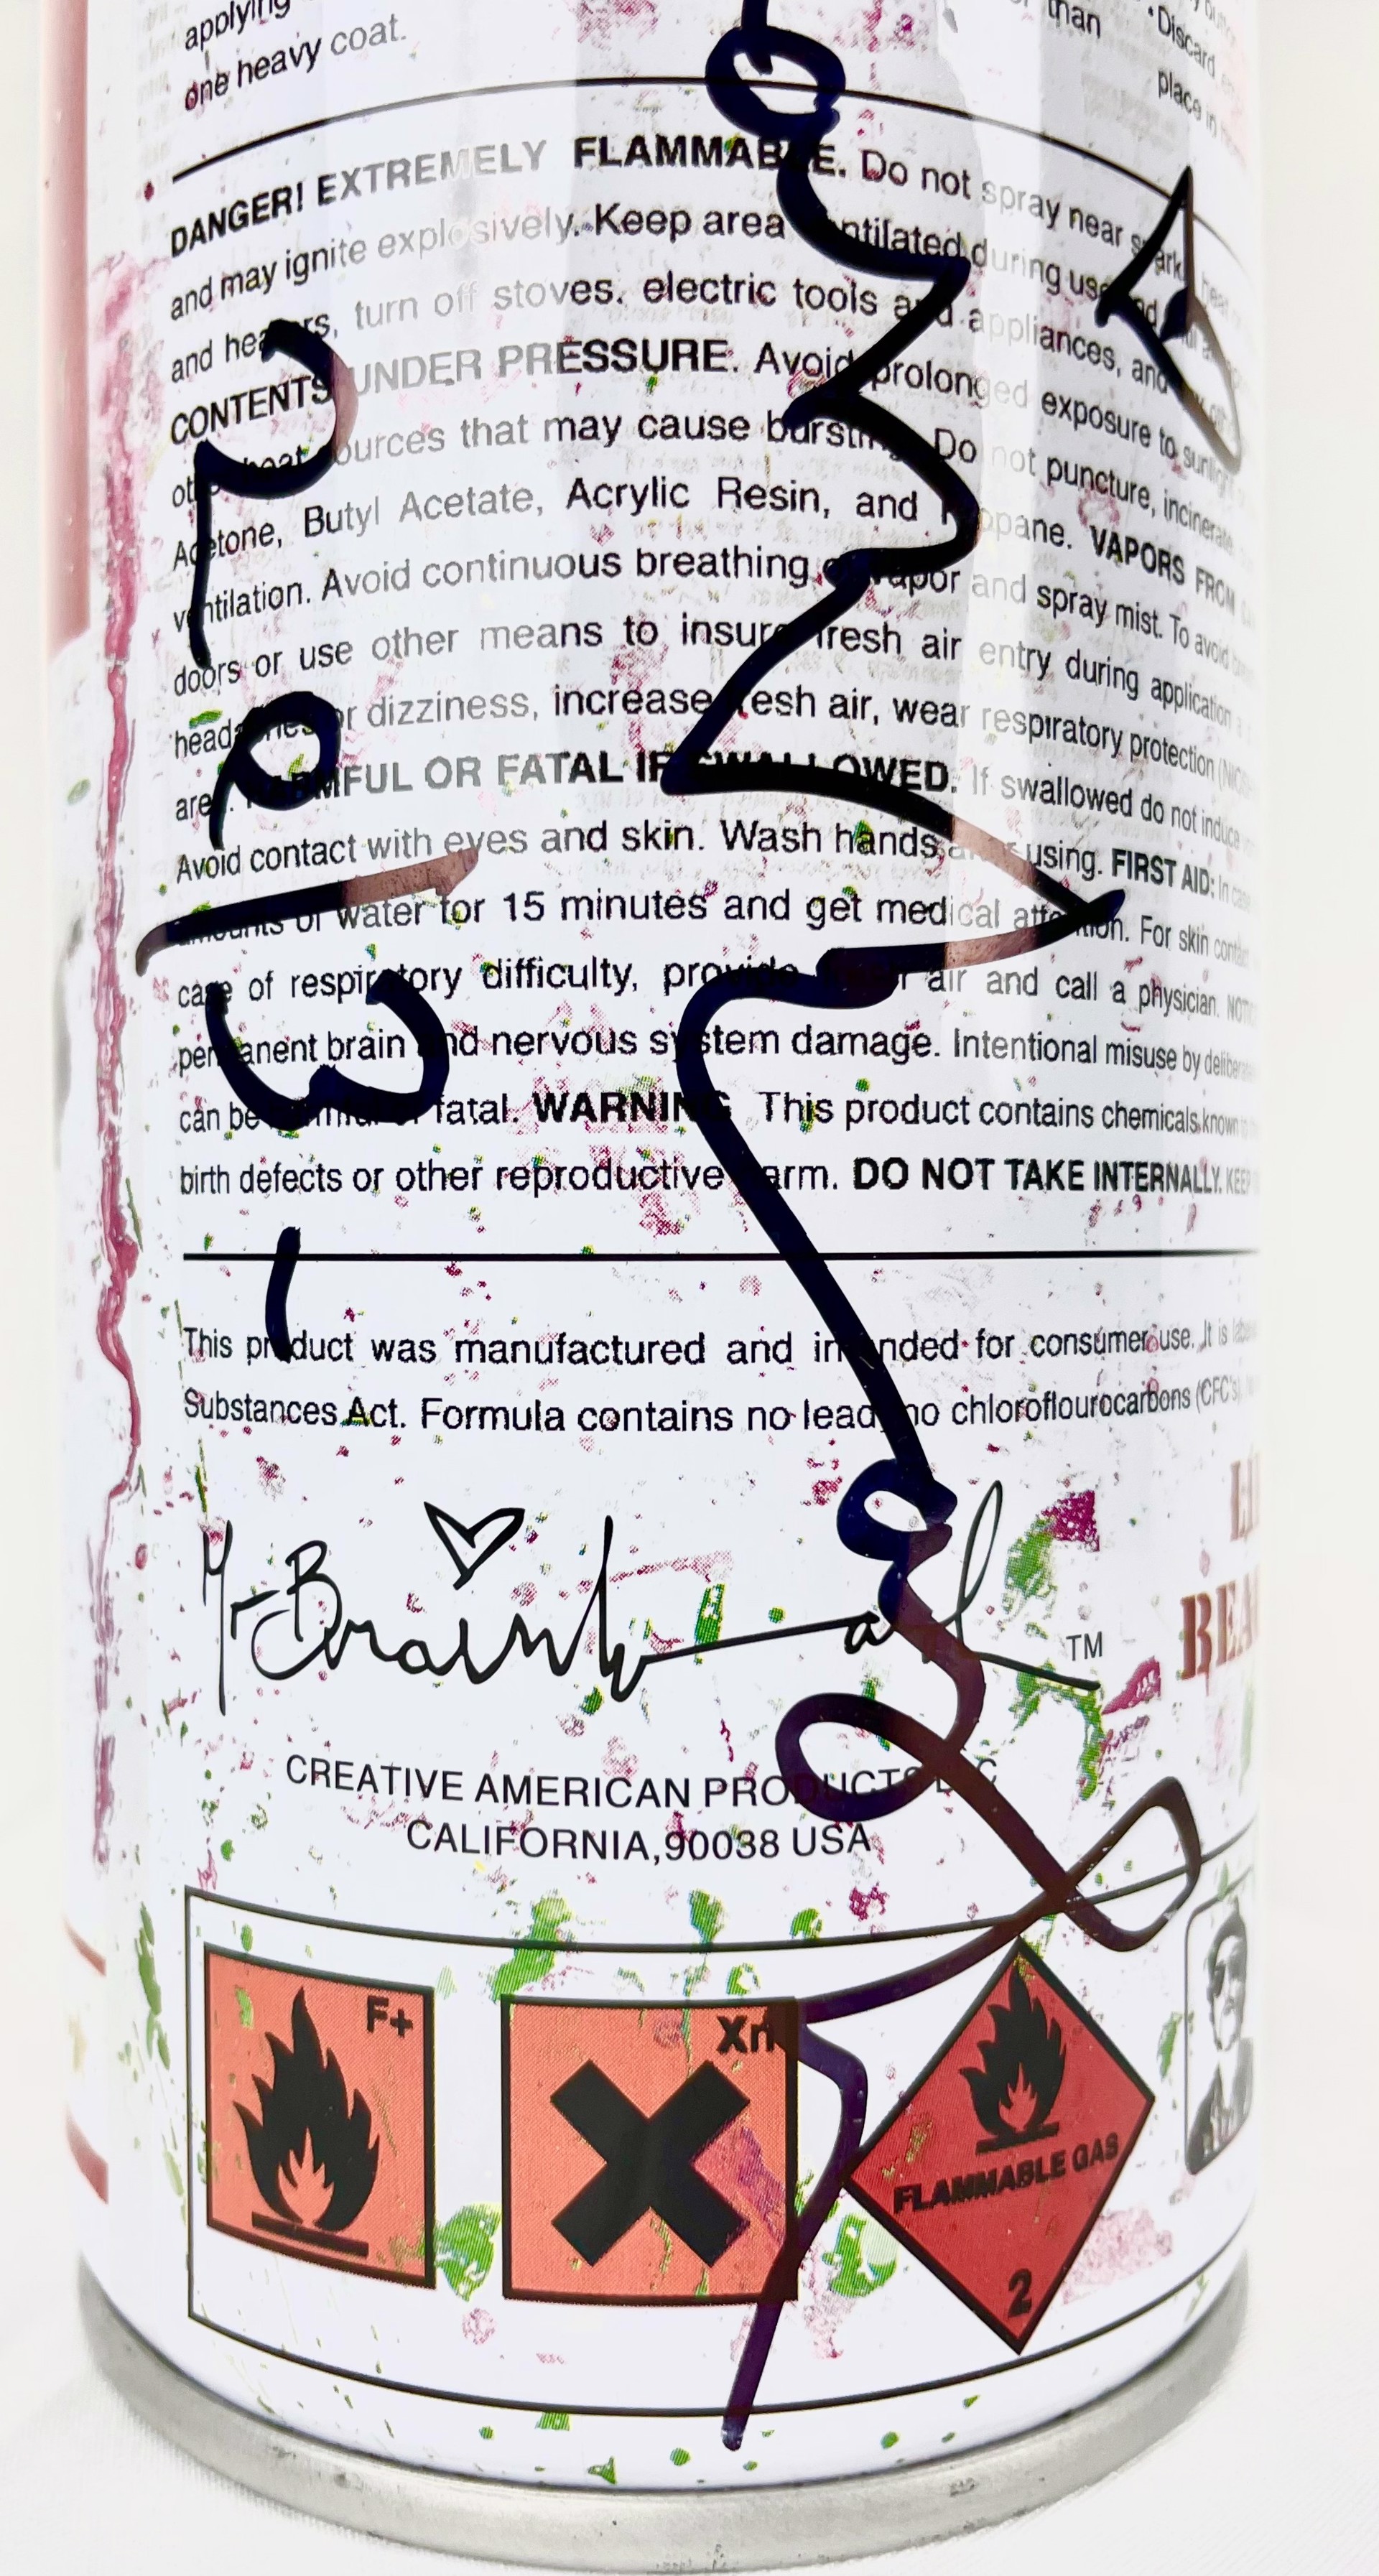 applying
one heavy coat.
than
•Discard
place in
DANGER! EXTREMELY FLAMMABLE. Do not spray near
and may ignite explosively. Keep area ventilated during use and
and heaters, turn off stoves. electric tools and appliances, and
CONTENTS UNDER PRESSURE. Avoid prolonged exposure to sunlight
other heat sources that may cause bursting. Do not puncture, incinerate
Acetone, Butyl Acetate, Acrylic Resin, and Propane. VAPORS FROM
ventilation. Avoid continuous breathing of vapor and spray mist. To avoid
doors or use other means to insure fresh air entry during application
headaches or dizziness, increase fresh air, wear respiratory protection
area. HARMFUL OR FATAL IF SWALLOWED. If swallowed do not induce
Avoid contact with eyes and skin. Wash hands after using. FIRST AID: In case
amounts of water for 15 minutes and get medical attention. For skin contact
case of respiratory difficulty, provide air and call a physician.
permanent brain and nervous system damage. Intentional misuse by
can be harmful or fatal. WARNING This product contains chemicals known
birth defects or other reproductive harm. DO NOT TAKE INTERNALLY. KEEP
This product was manufactured and intended for consumer use. It is
Substances Act. Formula contains no lead, no chloroflourocarbons (CFC's).
Mr Brainwash ™
CREATIVE AMERICAN PRODUCTS LLC
CALIFORNIA,90038 USA
F+
Xn
FLAMMABLE GAS
2